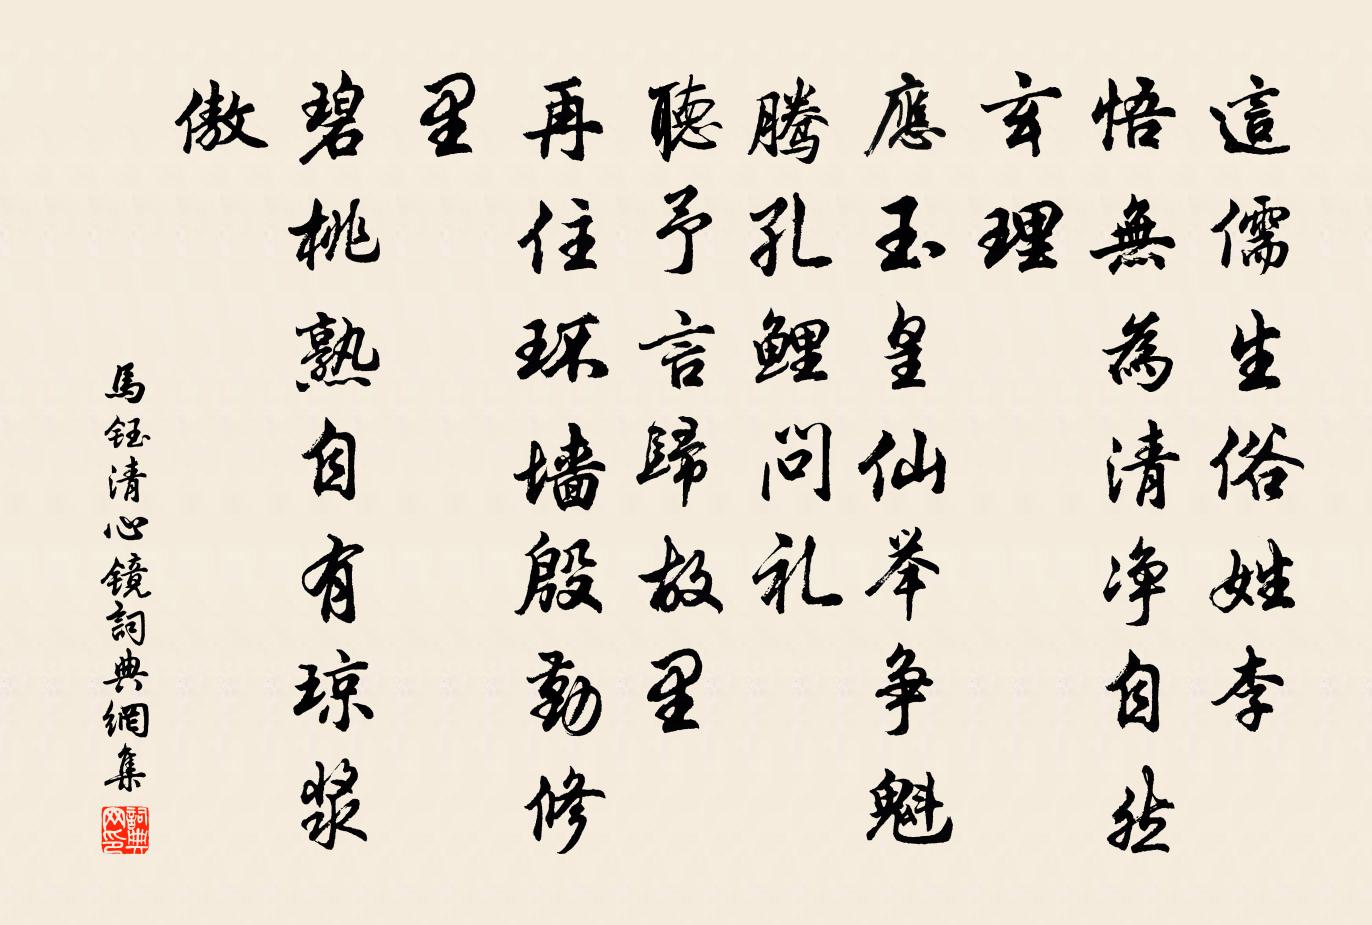 這儒生俗姓李
悟無為清净自然
玄理
應玉皇仙举争魁
騰孔鯉問礼
聽予言歸故里
再住环墙殷勤修
里
碧桃熟自有琼浆
傲
馬鈺清心镜詞典網集
詞典
网印